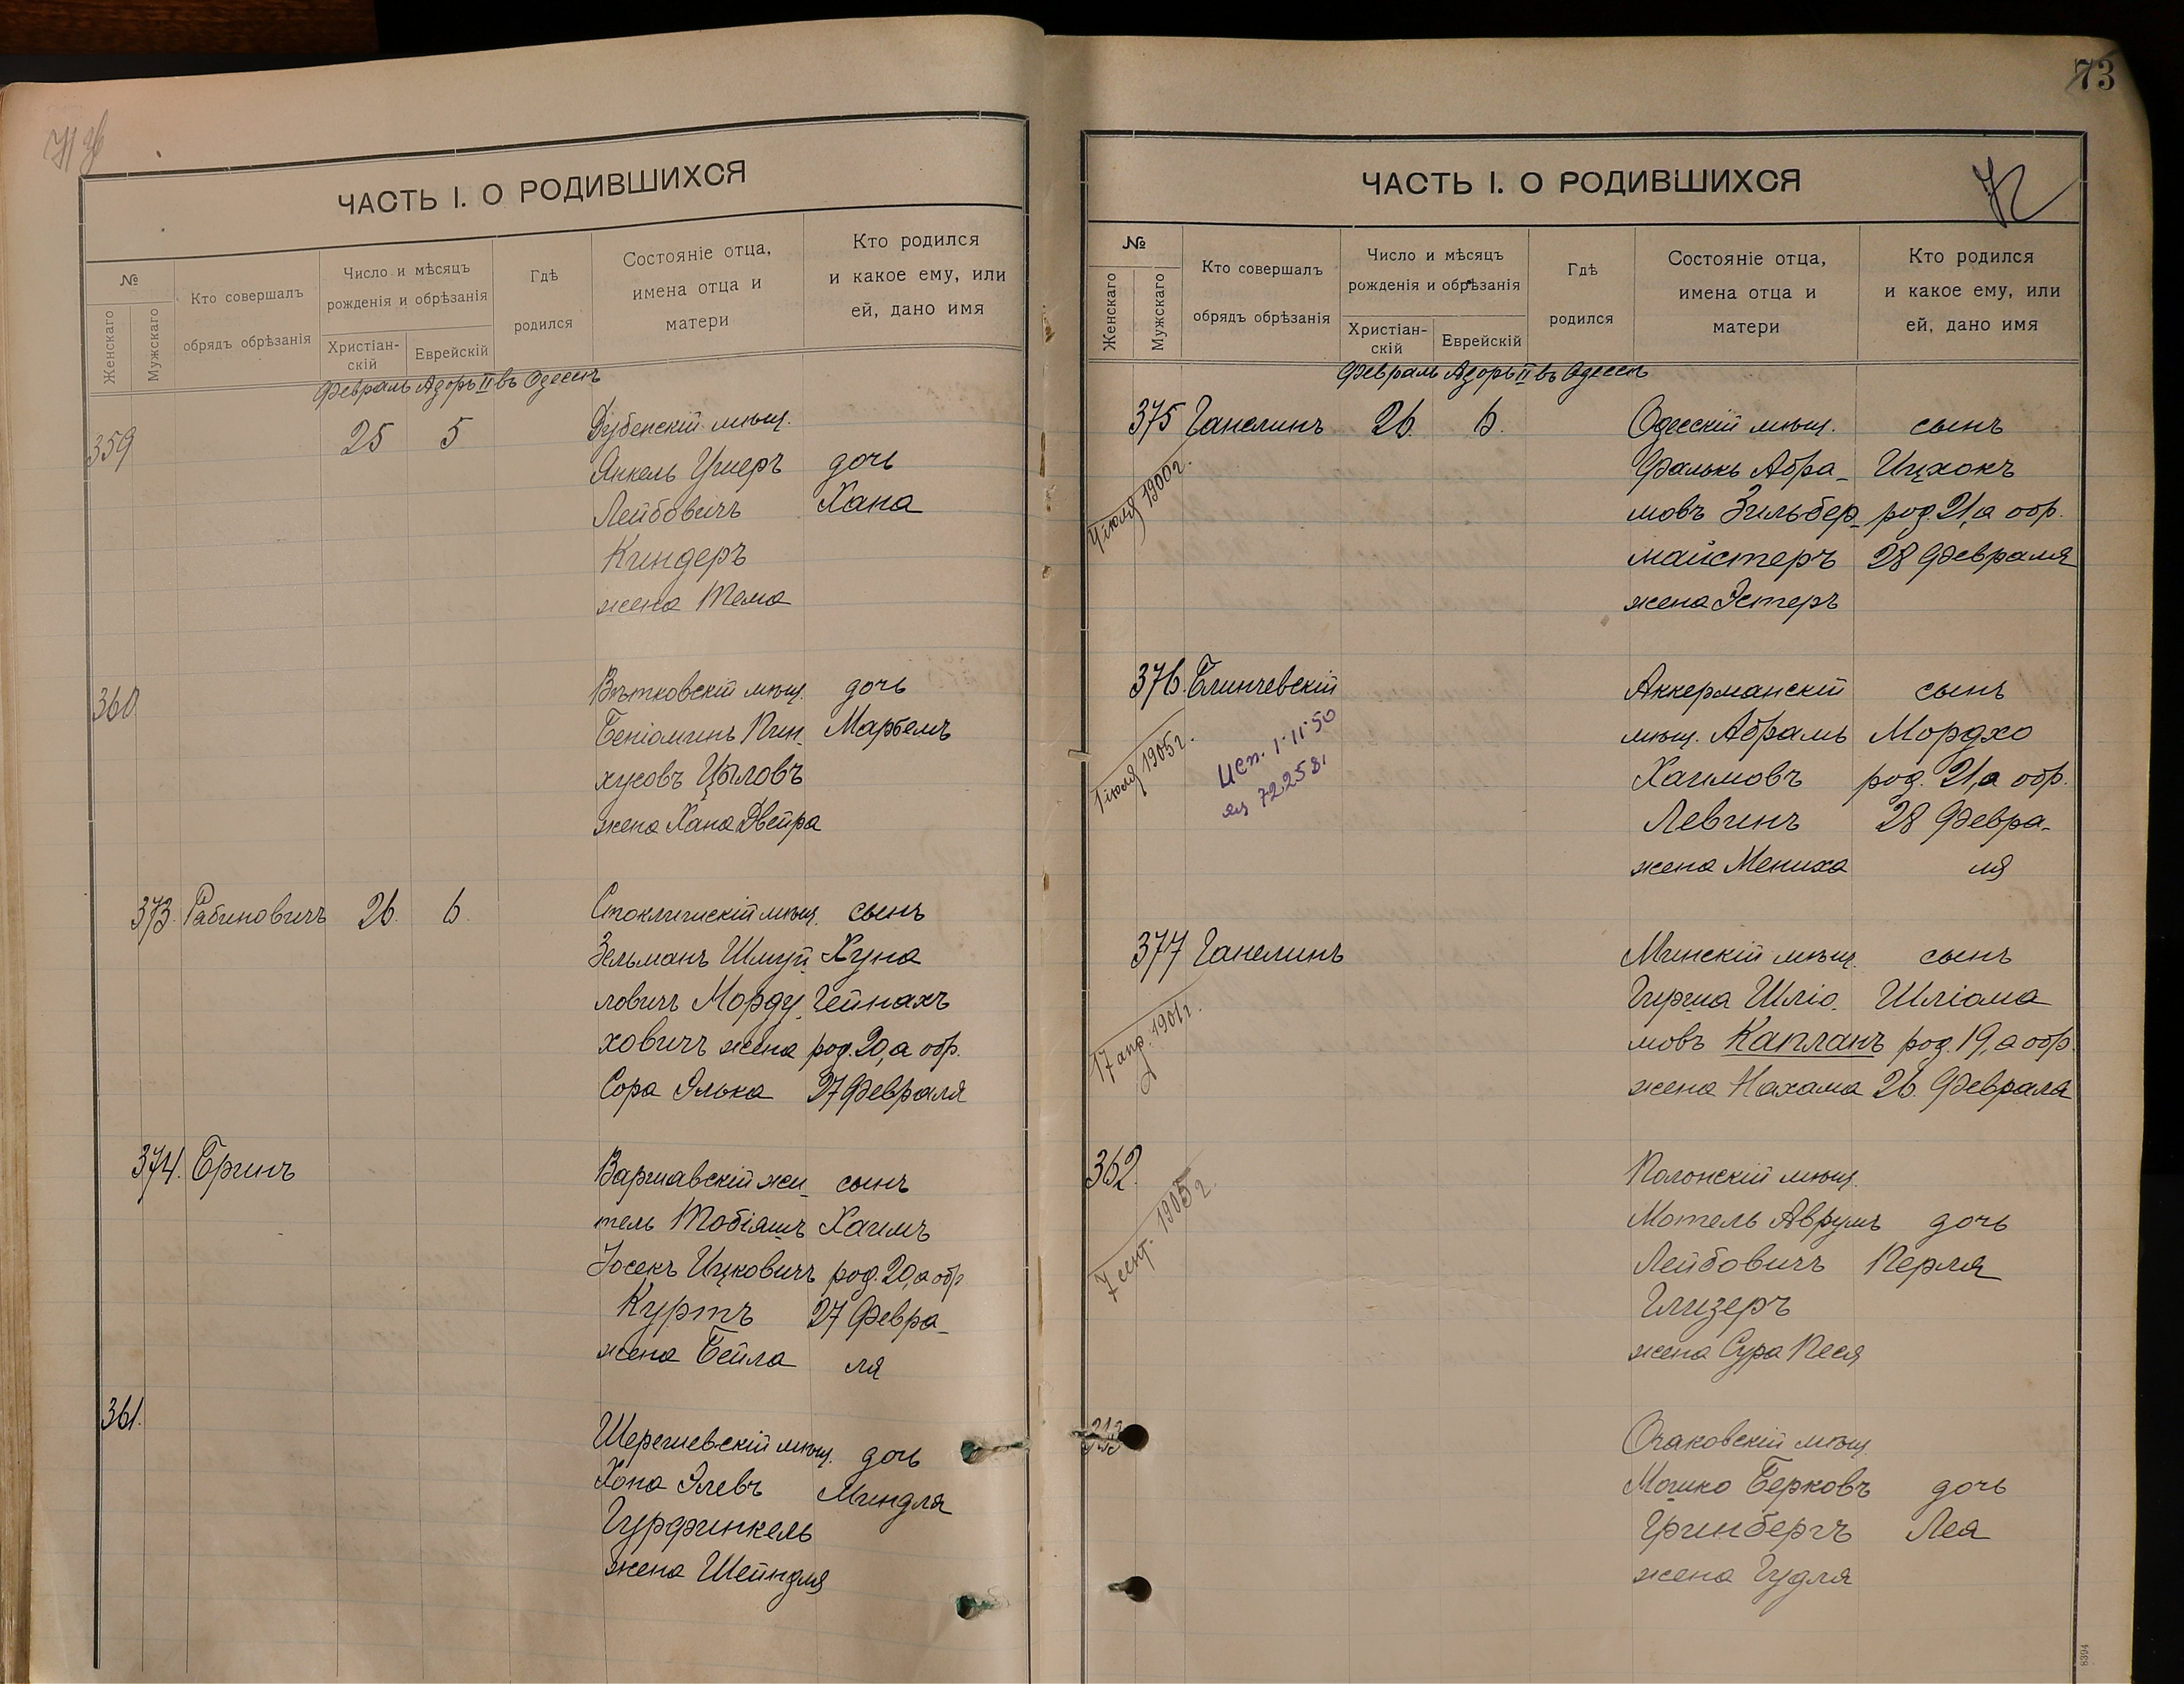 ЧАСТЬ I. О РОДИВШИХСЯ
№
Женскаго
Мужскаго
Кто совершалъ
обрядъ обрѣзанія
Число и мѣсяцъ
рожденія и обрѣзанія
Христіан-
скій
Еврейскій
Гдѣ
родился
Состояніе отца,
имена отца и
матери
Кто родился
и какое ему, или
ей, дано имя
Февраль Адоръ II въ Одессѣ
359 25 5 Дубенскій мѣщ.
Янкель Ушеръ дочь
Лейбовичъ Хана
Киндеръ
жена Тема
360 Вѣтковскій мѣщ. дочь
Беніоминъ Пин- Марбемъ
хусовъ Цыловъ
жена Хана Двейра
373. Рабиновичъ 26. 6. Стоклишскій мѣщ. сынъ
Зельманъ Шмуй- Хуна
ловичъ Морду- Гейнахъ
ховичъ жена род. 20, а обр.
Сора Элька 27 Февраля
374. Ергинъ Варшавскій жи- сынъ
тель Тобіяшъ Хаимъ
Іосекъ Ицковичъ род. 20, а обр.
Куртъ 27 Февра-
жена Бейла ля
361. Шерешевскій мѣщ. дочь
Хона Элевъ Миндля
Гурфинкель
жена Шейндля
73
72
ЧАСТЬ I. О РОДИВШИХСЯ
№
Женскаго
Мужскаго
Кто совершалъ
обрядъ обрѣзанія
Число и мѣсяцъ
рожденія и обрѣзанія
Христіан-
скій
Еврейскій
Гдѣ
родился
Состояніе отца,
имена отца и
матери
Кто родился
и какое ему, или
ей, дано имя
Февраль Адоръ II въ Одессѣ
375 Ганелинъ 26. 6. Одесскій мѣщ. сынъ
Фалькъ Абра- Ицхокъ
мовъ Зильбер- род. 21, а обр.
майстеръ 28 Февраля
жена Эстеръ
4 іюля 1900 г.
376. Блинчевскій Аккерманскій сынъ
мѣщ. Абрамъ Мордхо
Хаимовъ род. 21, а обр.
Левинъ 28 Февра-
жена Мениха ля
1 іюля 1905 г.
исп. 1·11·50
72258
377 Ганелинъ Минскій мѣщ. сынъ
Гирша Шліо- Шліома
мовъ Капланъ род. 19, а обр.
жена Нахама 26. Февраля
17 апр. 1901 г.
362. Полонскій мѣщ.
Мотель Аврумъ дочь
Лейбовичъ Перля
Глизеръ
жена Сура Песя
7 сент. 1905 г.
Очаковскій мѣщ.
Мошко Берковъ дочь
Гринбергъ Лея
жена Гудля
8394